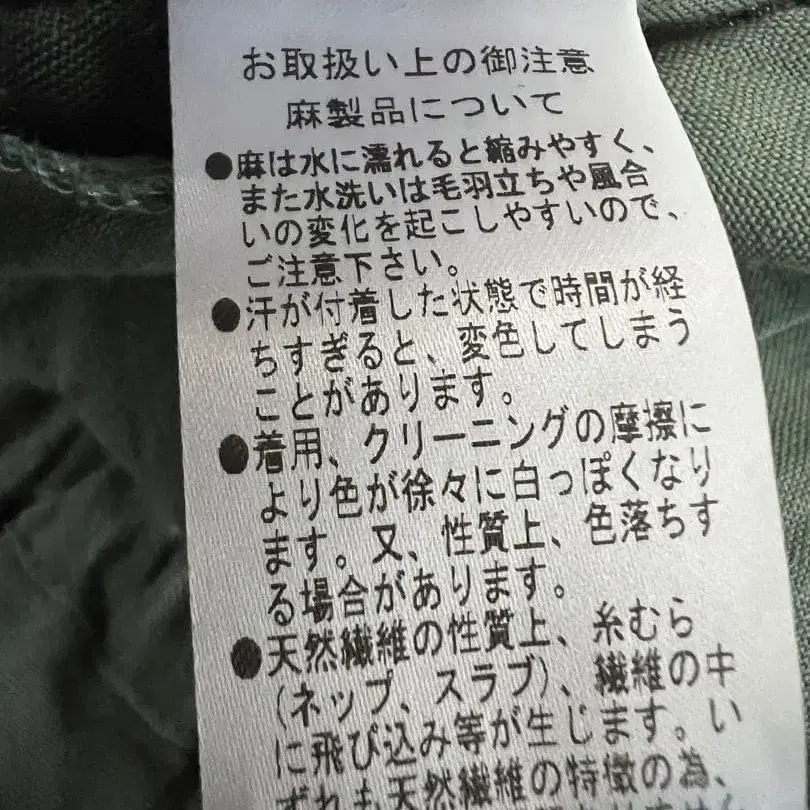 お取扱い上の御注意
麻製品について
●麻は水に濡れると縮みやすく、
また水洗いは毛羽立ちや風合
いの変化を起こしやすいので、
ご注意下さい。
●汗が付着した状態で時間が経
ちすぎると、変色してしまう
ことがあります。
●着用、クリーニングの摩擦に
より色が徐々に白っぽくなり
ます。又、性質上、色落ちす
る場合があります。
●天然繊維の性質上、糸むら
(ネップ、スラブ)、繊維の中
に飛び込み等が生じます。い
ずれも天然繊維の特徴の為、